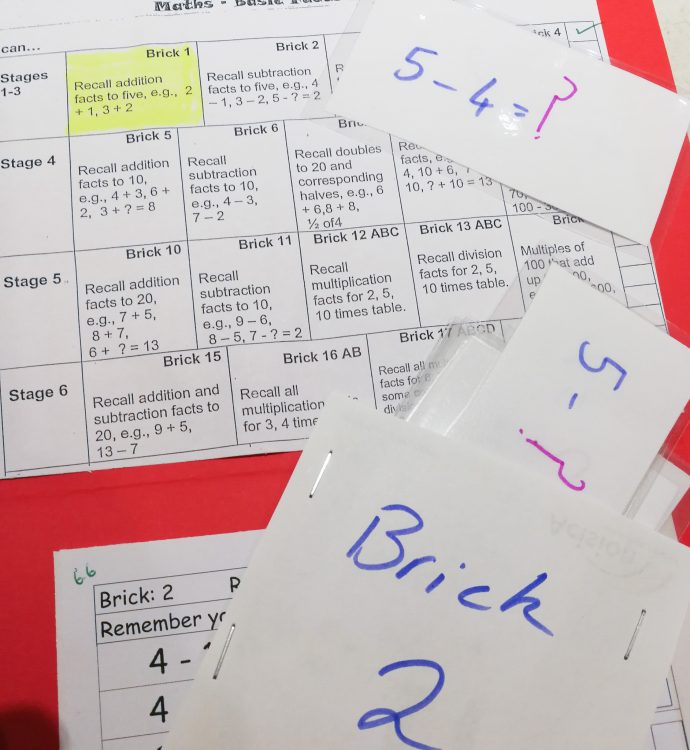 Maths - Basic Facts
can...
Stages 1-3
Brick 1
Recall addition
facts to five, e.g., 2
+ 1, 3 + 2
Brick 2
Recall subtraction
facts to five, e.g., 4
– 1, 3 – 2, 5 - ? = 2
ick 4
5 – 4 = ?
Stage 4
Brick 5
Recall addition
facts to 10,
e.g., 4 + 3, 6 +
2, 3 + ? = 8
Brick 6
Recall
subtraction
facts to 10,
e.g., 4 – 3,
7 – 2
Recall doubles
to 20 and
corresponding
halves, e.g., 6
+ 6,8 + 8,
½ of4
facts, e.
4, 10 + 6,
10, ? + 10 = 13
100 - 30
Stage 5
Brick 10
Recall addition
facts to 20,
e.g., 7 + 5,
8 + 7,
6 + ? = 13
Brick 11
Recall
subtraction
facts to 10,
e.g., 9 – 6,
8 – 5, 7 - ? = 2
Brick 12 ABC
Recall
multiplication
facts for 2, 5,
10 times table.
Brick 13 ABC
Recall division
facts for 2, 5,
10 times table.
Brick
Multiples of
100 that add
up
Stage 6
Brick 15
Recall addition and
subtraction facts to
20, e.g., 9 + 5,
13 – 7
Brick 16 AB
Recall all
multiplication
for 3, 4 time
Brick 17 ABCD
Recall all
facts for
some
5 - ?
Brick
2
66
Brick: 2
Remember
4 -
4